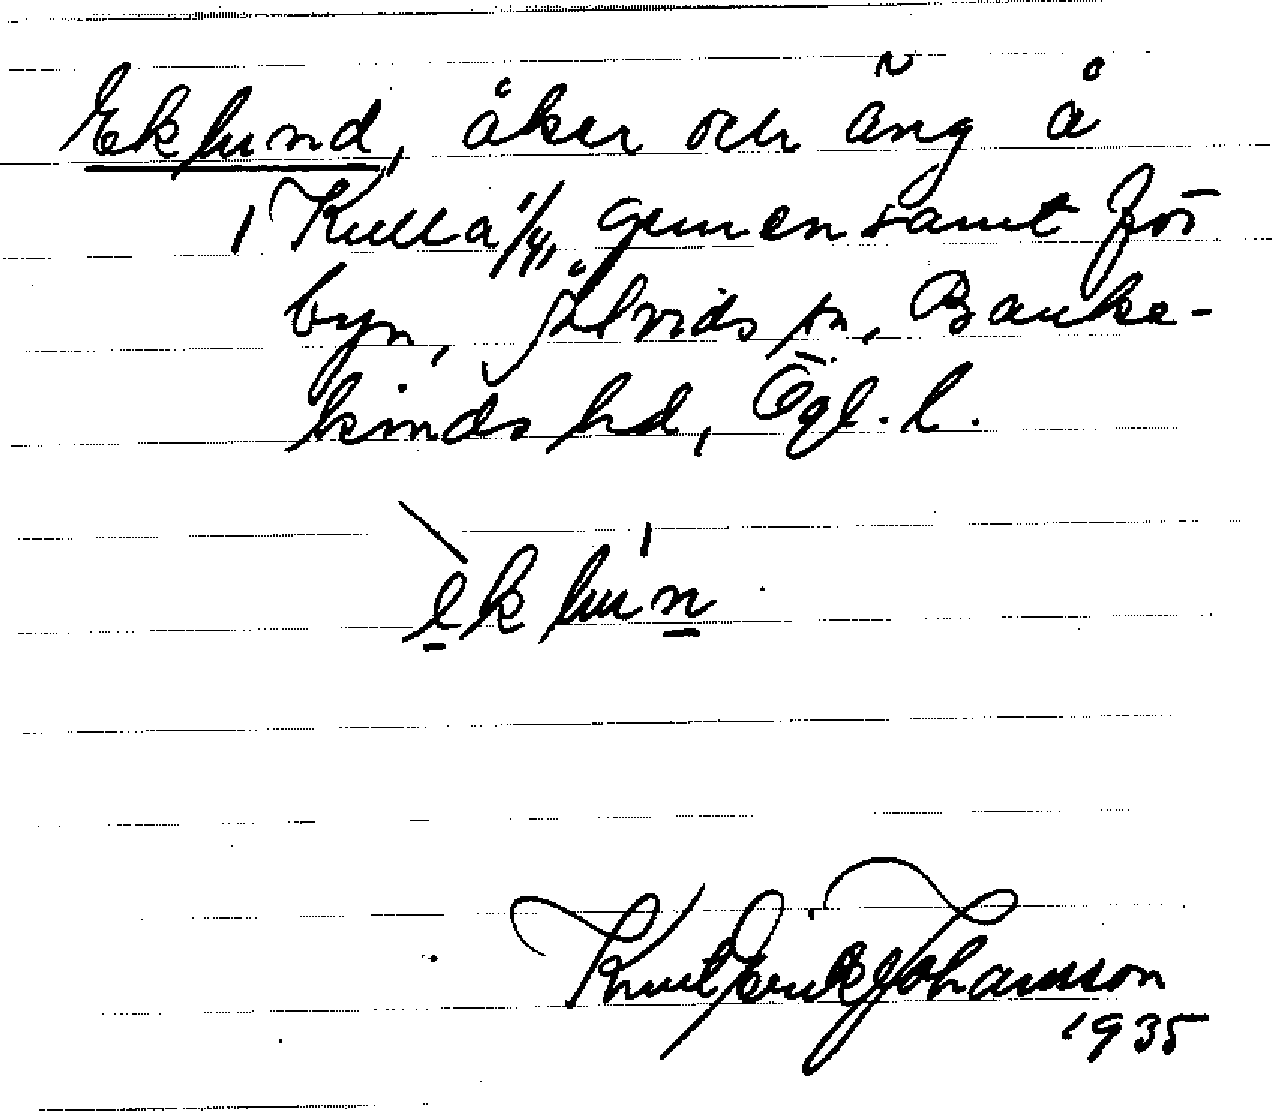 Eklund, åker och äng å
Kulla 1/4, gemensamt för
byn, Å̊lvids sn, Banke-
kinds hd, Ögl. l.
eklun
Knut Erik Johansson
1935